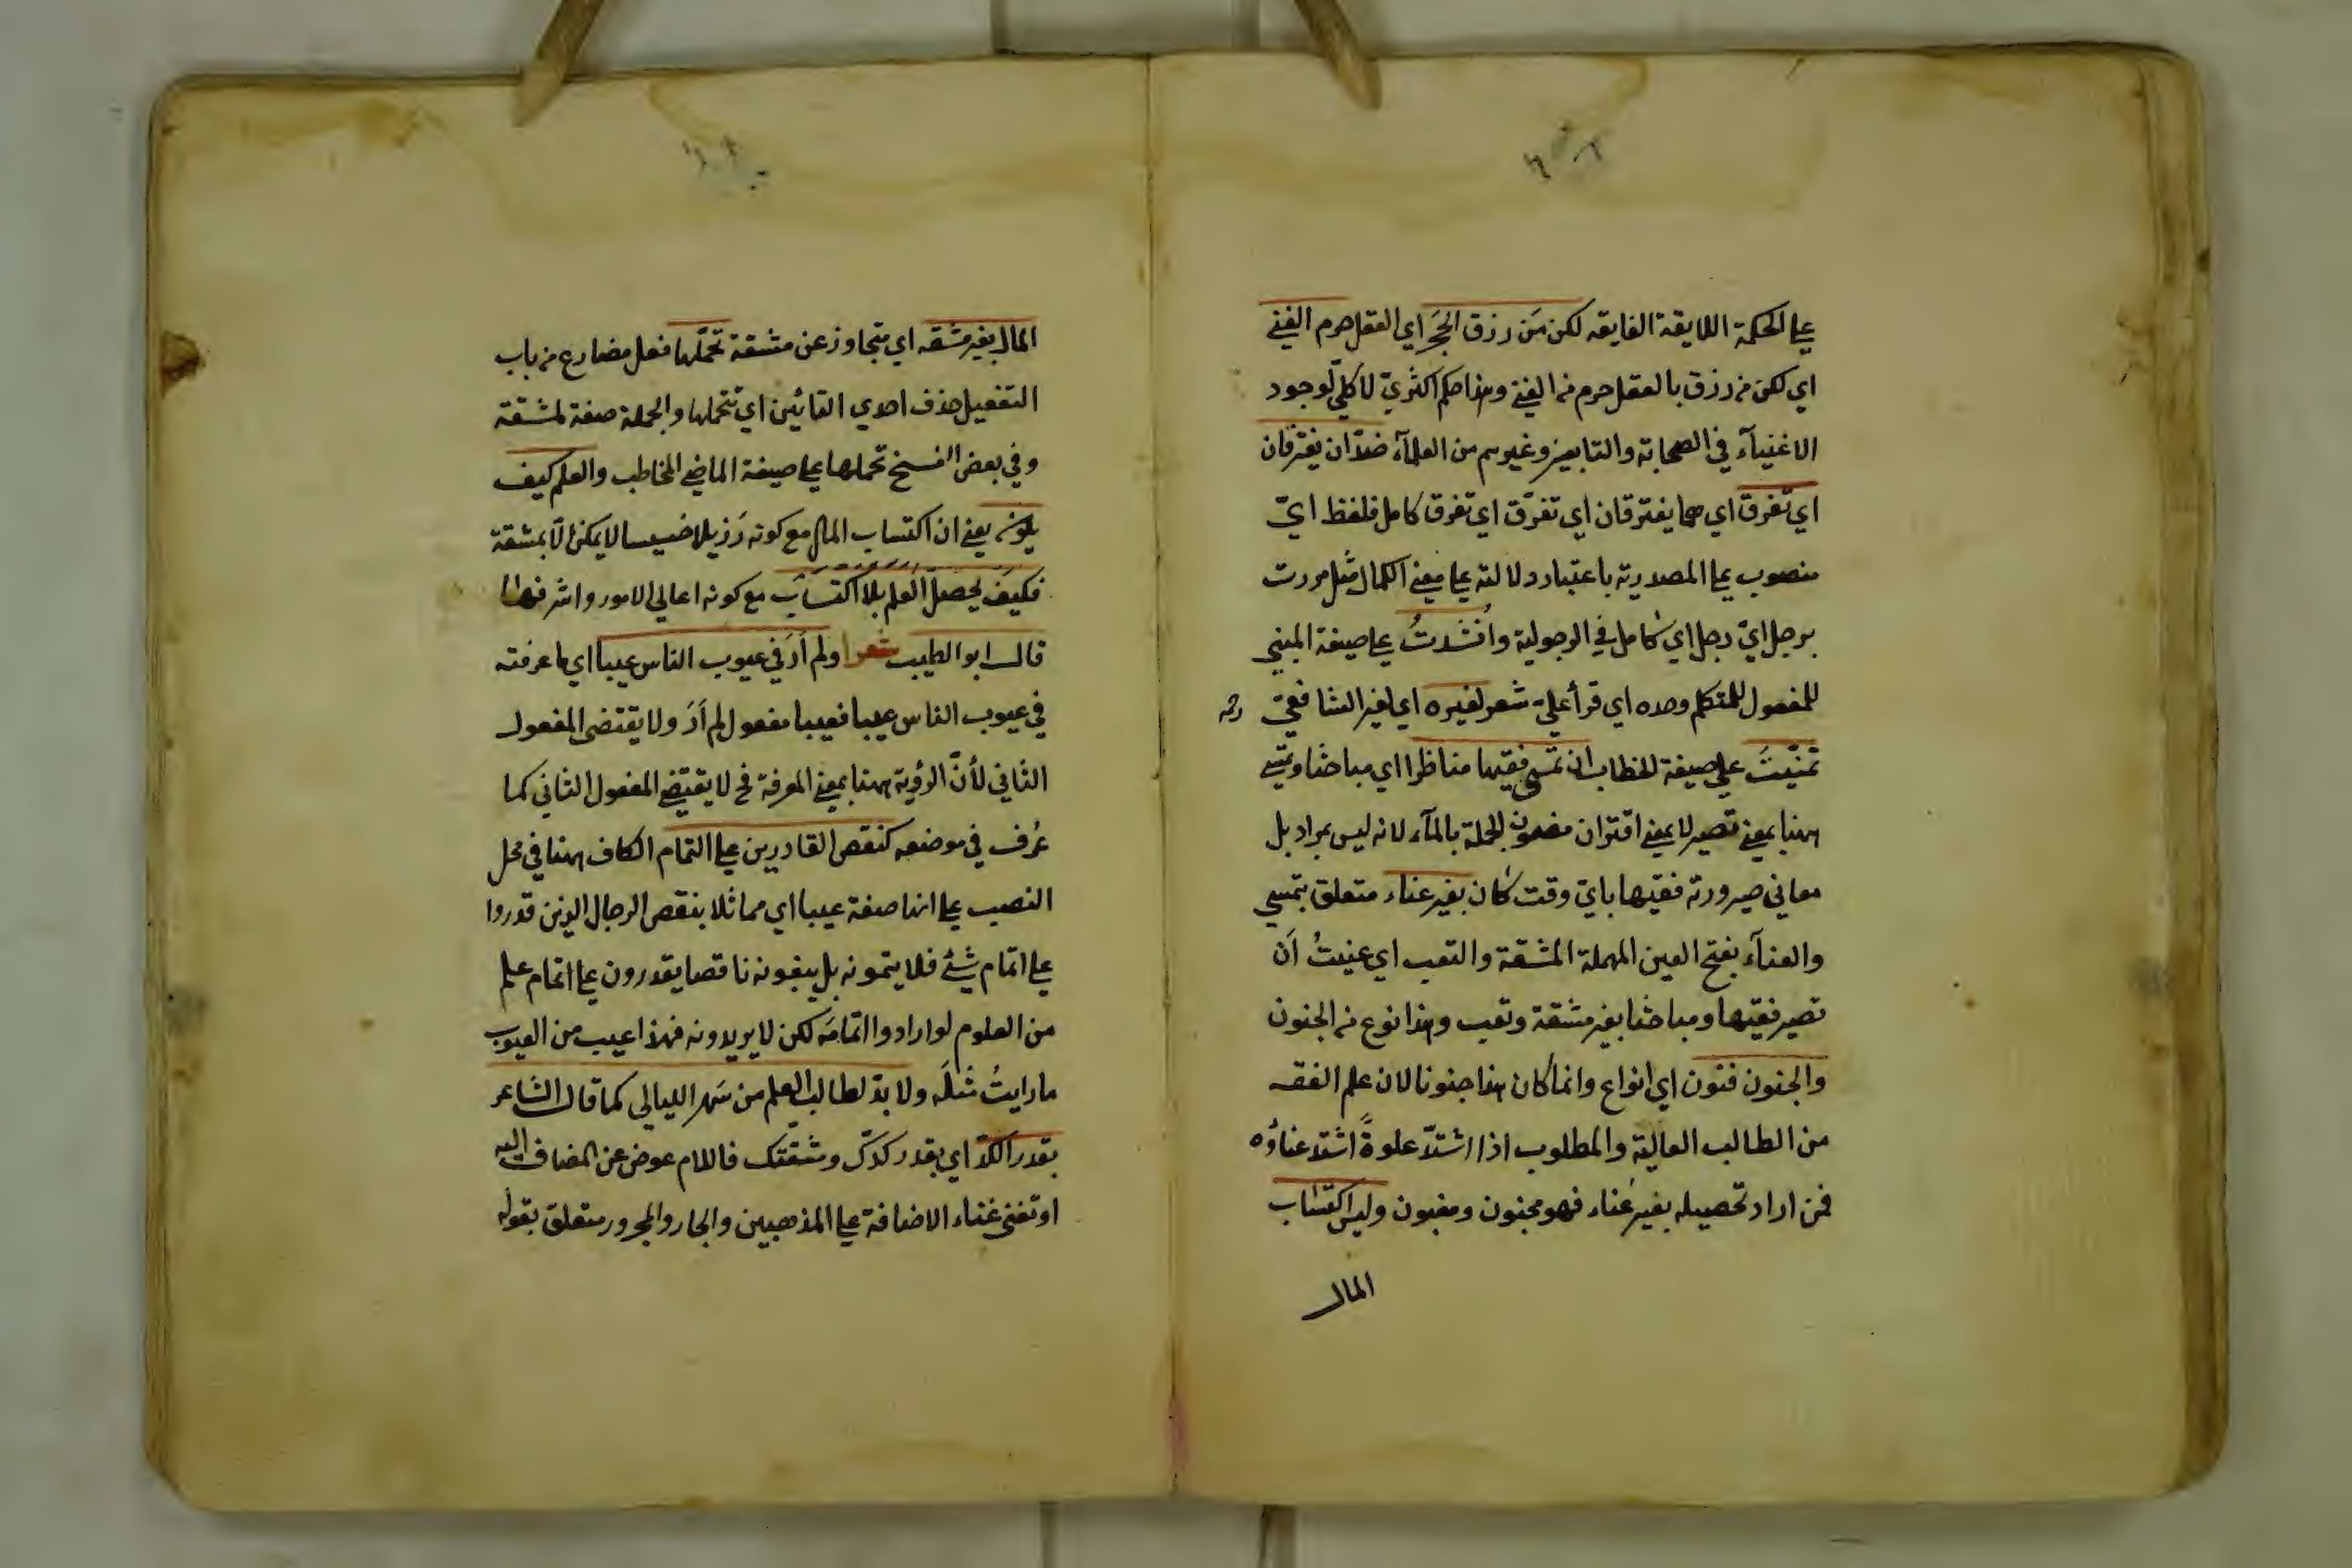 على الحكمة اللايقة الفايقه لكن مَن رزق الحِجَر اي العقل حرم الغنى
اي لكن من رزق بالعقل حرم من الغنى وهذا حكم اكثريّ لا كليّ لوجود
الاغنيآء في الصحابة والتابعين وغيرهم من العلمآء ضدّان يفترقان
اي تفرق اي هما يفترقان اي تفرّق اي تفرق كامل فلفظ ايّ
منصوب على المصدرية باعتبار دلالته على معنى الكمال مثل مررت
برجل ايّ رجل اي كامل في الرجولية وانُشدتُ على صيغة المبني
للمفعول للمتكلم وحده اي قرأ عليّ شعر لغيره اي لغير الشافعيّ رحمه
تمنّيتَ على صيغة الخطاب ان تمسي فقيها مناظرا اي مباحثا وتمسي
ههنا بمعنى تصير لا بمعنى اقتران مضمون الجملة بالمآء لانه ليس بمراد بل
معاني صيرورته فقيها بايّ وقت كان بغير عناء متعلق بتمسي
والعنآء بفتح العين المهملة المشقة والتعب اي عنيتُ اَن
تصير فقيها ومباحثا بغير مشقة وتعب وهذا نوع من الجنون
والجنون فنون اي انواع وانما كان هذا جنونا لان علم الفقه
من الطالب العالية والمطلوب اذا اشتدّ علوةً اشتد عناؤه
فمن اراد تحصيله بغير عَناء فهو مجنون ومغبون وليس اكتساب
المال
المال بغير مشقه اي متجاوز عن مشقة تحمّلها فعل مضارع من باب
التفعيل حذف احدي التائين اي تتحملها والجملة صفة لمشقة
وفي بعض النسخ تحملها على صيغة الماضي المخاطب والعلم كيف
يكون يعني ان اكتساب المال مع كونه رَذيلا خسيسا لا يمكن الّا بمشقة
فكيف يحصل العلم بلا اكتساب مع كونه اعالي الامور واشرفها
قال ابو الطيب شعرا ولم اَرَ في عيوب الناس عيبا اي ما عرفته
في عيوب الناس عيبا فعيبا مفعول لم اَرَ ولا يقتضى المفعول
الثاني لأنّ الرؤية ههنا بمعنى المعرفة فح لا يقتضي المفعول الثاني كما
عُرف في موضعه كنقص القادرين على التمام الكاف ههنا في محل
النصب على انها صفة عيبا اي مماثلا بنقص الرجال الذين قدروا
على اتمام شئ فلا يتمونه بل يبقونه ناقصا يقدرون على اتمام علم
من العلوم لو ارادوا اتمامَه لكن لا يريدونه فهذا عيب من العيوب
ما رايتُ مثلَه ولا بدّ لطالب العلم من سَهر الليالي كما قال الشاعر
بقدر الكدّ اي بقدر كدّك ومشقّتك فاللام عوض عن المضاف اليه
او تغنى غناء الاضافة على المذهبين والجار والمجرور متعلق بقوله